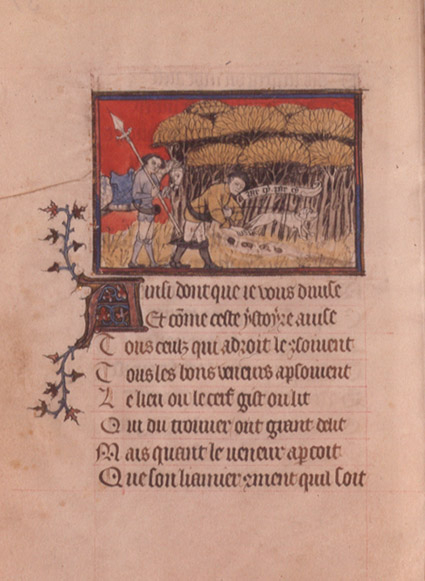 Ainsi dont que ie vous diuise
Et cõme ceste ystoyre auise
Tous ceulz qui adroit le
Tous les bons veneurs
Le lieu ou le cerf gist ou lit
Qui du trouuer ont grant delit
Mais quant le veneur apcoit
Que son liamier ment quil soit